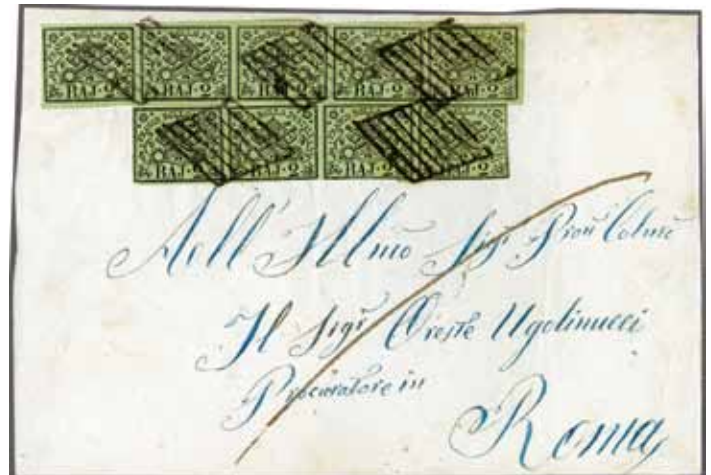 BAJ·2 BAJ·2 BAJ·2 BAJ·2 BAJ·2
BAJ·2 BAJ·2 BAJ·2 BAJ·2
All' Illmo Sigr Pron Colmo
Il Sigr Oreste Ugolinucci
Procuratore in
Roma